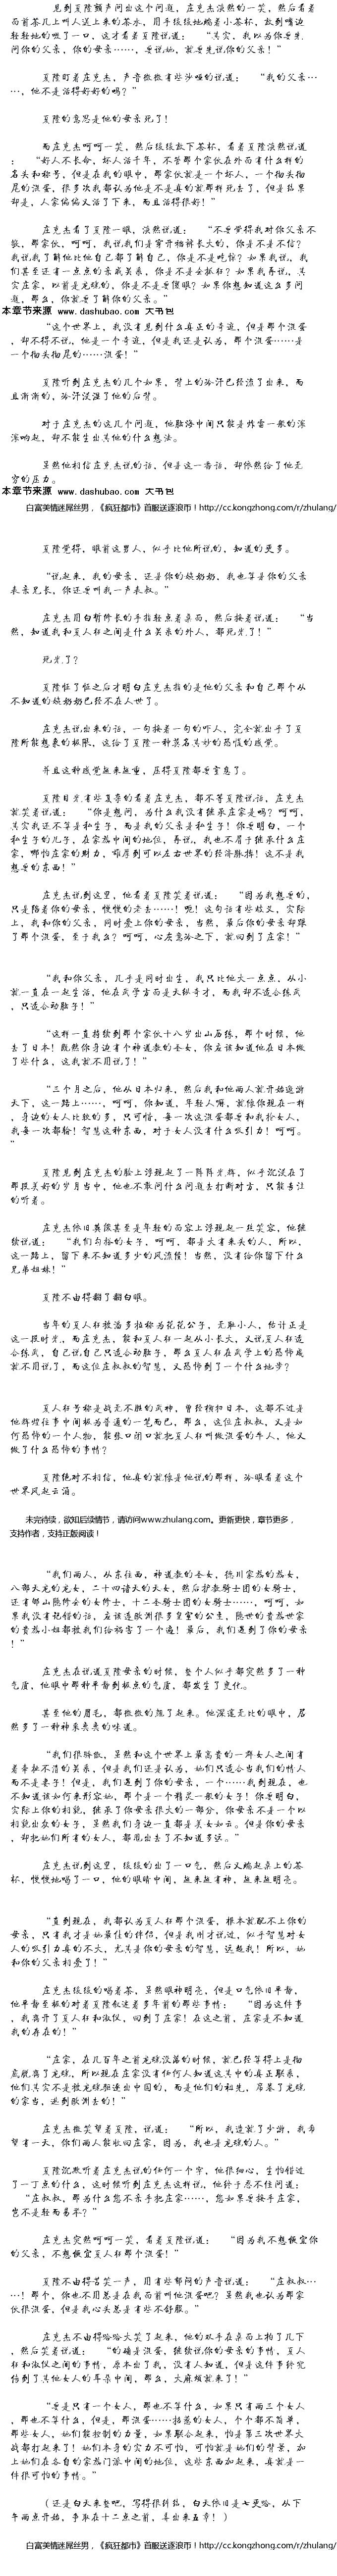 见到夏隆频声问出这个问题，庄克杰淡然的一笑，然后看着
面前茶几上叫人送上来的茶水，用手缓缓地端着小茶杯，放到嘴边
轻轻地的吸了一口，这才看着夏隆说道：　“其实，我以为你要先
问你的父亲，你的母亲……，要说她，就要先说你的父亲！”
夏隆盯着庄克杰，声音微微有些沙哑的说道：　“我的父亲…
…，他不是活得好好的吗？”
夏隆的意思是他的母亲死了！
而庄克杰呵呵一笑，然后缓缓放下茶杯，看着夏隆淡然说道
：　“好人不长命，坏人活千年，不管那个家伙在外面有什么样的
名头和称号，但是在我的眼中，那家伙就是一个坏人，一个彻头彻
尾的混蛋，很多次我都认为他是不是真的就那样死去了，但是结果
却是，人家偏偏又活了下来，而且活得很好！”
庄克杰看了夏隆一眼，淡然说道：　“不要觉得我对你父亲不
敬，那家伙，呵呵，我说我们是穿开裆裤长大的，你是不是不信？
我说我了解他比他自己都了解自己，你是不是吃惊？如果我说，我
们甚至还有一点点的亲戚关系，你是不是会抓狂？如果我再说，其
实庄家，以前是龙魂的，你是不是要傻眼？如果你想知道这么多问
题，那么，你就要了解你的父亲。”
本章节来源  www.dashubao.com  大书包
“这个世界上，我没有见到什么真正的奇迹，但是那个混蛋
，却不得不说，他是一个奇迹，但是我还是认为，那个混蛋……是
一个彻头彻尾的……混蛋！”
夏隆听到庄克杰的几个如果，背上的冷汗已经流了出来，而
且渐渐的，冷汗浸湿了他的后背。
对于庄克杰的这几个问题，他脑海中间只能是炸雷一般的深
深响起，却不能生出其他的什么想法。
虽然他相信庄克杰说的话，但是这一番话，却依然给了他无
穷的压力。
本章节来源  www.dashubao.com  大书包
白富美情迷屌丝男，《疯狂都市》首服送逐浪币！http://cc.kongzhong.com/r/zhulang/
夏隆觉得，眼前这男人，似乎比他所说的，知道的更多。
“说起来，我的母亲，还是你的姨奶奶，我也算是你的父亲
表亲兄长，你还要叫我一声表叔。”
庄克杰用白皙修长的手指轻点着桌面，然后接着说道：　“当
然，知道我和夏人狂之间是什么关系的外人，都死光了！”
死光了？
夏隆怔了怔之后才明白庄克杰指的是他的父亲和自己那个从
不知道的姨奶奶已经不在人世了。
庄克杰说出来的话，一句接着一句的吓人，完全就出乎了夏
隆所能想象的极限，这给了夏隆一种莫名其妙的恐惧的感觉。
并且这种感觉越来越重，压得夏隆都要窒息了。
夏隆目光有些复杂的看着庄克杰，都不等夏隆说话，庄克杰
就笑着说道：　“你是想问，为什么我没有继承庄家是吗？呵呵，
其实我还不算是私生子，而是我的父亲是私生子！你要明白，一个
私生子的儿子，在家族中间的地位，再说，我也不屑于继承什么庄
家，哪怕庄家的财力，雄厚到可以左右世界的经济脉搏！这不是我
想要的东西！”
庄克杰说到这里，他看着夏隆笑着说道：　“因为我想要的，
只是陪着你的母亲，慢慢的老去……！呃！这句话有些歧义，实际
上，我和你的父亲，同时爱上你的母亲，当然，最后你的母亲却跟
了那个混蛋，至于我么？呵呵，心灰意冷之下，就回到了庄家！”
“我和你父亲，几乎是同时出生，我只比他大一点点，从小
就一直在一起生活，他在武学方面是天纵奇才，而我却不适合练武
，只适合动脑子！”
“这样一直持续到那个家伙十八岁出山历练，那个时候，他
去了日本！既然你身边有个神道教的圣女，你应该知道他在日本做
了些什么，这我就不用说了！”
“三个月之后，他从日本归来，然后我和他两人就开始遨游
天下，这一路上……，呵呵，你知道，年轻人嘛，就像你现在一样
，身边的女人比较的多，只可惜，每一次这混蛋都要和我抢女人，
我每一次都输！智慧这种东西，对于女人没有什么吸引力！呵呵。
”
夏隆见到庄克杰的脸上浮现起了一阵阵光辉，似乎沉浸在了
那段美好的岁月当中，他也不敢问什么问题去打断对方，只能专注
的听着。
庄克杰依旧英俊甚至是年轻的面容上浮现起一丝笑容，他继
续说道：　“我们勾搭的女子，呵呵，都是大有来头的人，所以，
这一路上，留下来不知道多少的风流债！当然，没有给你留下什么
兄弟姐妹！”
夏隆不由得翻了翻白眼。
当年的夏人狂被潘多拉称为花花公子，无耻小人，估计正是
这一段时光，而庄克杰，能和夏人狂一起从小长大，又说夏人狂适
合练武，自己说自己只适合动脑子，那么夏人狂在武学上的恐怖成
就不用说了，而这位庄叔叔的智慧，又恐怖到了一个什么地步？
夏人狂号称是战无不胜的武神，曾经横扫日本，这都不过是
他辉煌往事中间极为普通的一笔而已，那么，这位庄叔叔，又是如
何恐怖的一个人物，能张口闭口就把夏人狂叫做混蛋的牛人，他又
做了什么恐怖的事情？
夏隆绝对不相信，他真的就像是他说的那样，冷眼看着这个
世界风起云涌。
未完待续，欲知后续情节，请访问www.zhulang.com。更新更快，章节更多，
支持作者，支持正版阅读！
“我们两人，从东往西，神道教的圣女，德川家族的族女，
八部天龙的龙女，二十四诸天的天女，然后护教骑士团的女骑士，
还有郇山隐修会的女修士，十二圣骑士团的女骑士……，呵呵，如
果我没有说错的话，应该连欧洲很多皇室的公主，隐世的贵族世家
的贵族小姐都被我们给祸害了一个遍！最后，我们遇到了你的母亲
！”
庄克杰在说道夏隆母亲的时候，整个人似乎都突然多了一种
气质，他眼中那种平静到极点的气质，都发生了变化。
甚至他的眉毛，都微微的翘了起来。他深邃无比的眼中，居
然多了一种神采奕奕的味道。
“我们很骄傲，虽然和这个世界上最高贵的一群女人之间有
着牵扯不清的关系，但是我们还是认为，她们只适合当我们的情人
而不是妻子！但是，我们遇到了你的母亲，一个……我到现在，也
不知道该如何来形容她，那个是一个精灵一般的女子！你要明白，
实际上你的相貌，继承了你母亲很大的一部分，你母亲不是一个以
相貌出众的女子，虽然我们身边一直都是美女如云。但是你的母亲
，却把她们所有的女人，都甩出去了不知道多远。”
庄克杰说到这里，缓缓的出了一口气，然后又端起桌上的茶
杯，慢慢地喝了一口，他的眼睛中间，越来越有神，越来越明亮。
“直到现在，我都认为夏人狂那个混蛋，根本就配不上你的
母亲，只有我才是她最佳的伴侣，但是我刚才说过，似乎智慧对女
人的吸引力真的不大，尤其是你的母亲的智慧，远超我！所以，她
和你的父亲相爱了！”
庄克杰缓缓的喝着茶，虽然眼神明亮，但是口气依旧平静，
他平静至极的对着夏隆叙述着多年前的那些事情：　“因为这件事
，我离开了夏人狂和淑仪，回到了庄家！在这之前，庄家是不知道
我的存在的！”
“庄家，在几百年之前龙魂没落的时候，就已经算得上是彻
底脱离了龙魂，所以现在庄家没有任何人知道这其中的真正联系，
他们其实不是被龙魂驱逐出中国的，而是他们的祖先，席卷了龙魂
的家当，逃到欧洲去的！”
庄克杰微笑望着夏隆，说道：　“所以，我造就了少游，我希
望有一天，你们两人能收回庄家，因为，我也是龙魂的人。”
夏隆沉默听着庄克杰说的任何一个字，他很细心，生怕错过
了一丁点的什么，这时候听到庄克杰这样说，他终于忍不住问道：
“庄叔叔，那为什么您不亲手把庄家……，您如果要接手庄家，
岂不是轻而易举？”
庄克杰突然呵呵一笑，看着夏隆说道：　“因为我不想便宜你
的父亲，不想便宜夏人狂那个混蛋！”
夏隆不由得苦笑一声，用有些郁闷的声音说道：　“庄叔叔…
…！那个，你也不用总是在我面前叫他混蛋吧？虽然我也认为那家
伙很混蛋，但是我心头总是有些不舒服。”
庄克杰不由得哈哈大笑了起来，他的双手在桌面上拍了几下
，然后笑着说道：　“的确是混蛋，继续说你的母亲的事情，夏人
狂和淑仪之间的事情，原本出了我，没有人知道，但是这件事终究
传到了其他女人的耳朵中间，那么，大麻烦就来了！”
“要是只有一个女人，那也不算什么，如果只有两三个女人
，那也不算什么，但是，那混蛋……招惹的女人，个个都不简单，
那些女人，她们能控制的力量，如果联合起来，怕是第三次世界大
战都打起来了！她们本身的实力不可怕，可怕就是她们的背景，加
上她们在各自的家族门派中间的地位，这些东西加起来，真就是一
件很可怕的事情。”
（还是白天来整吧，写得很纠结，白天依旧是七更哈，从下
午两点开始，争取在十二点之前，弄出来五章！）
白富美情迷屌丝男，《疯狂都市》首服送逐浪币！http://cc.kongzhong.com/r/zhulang/